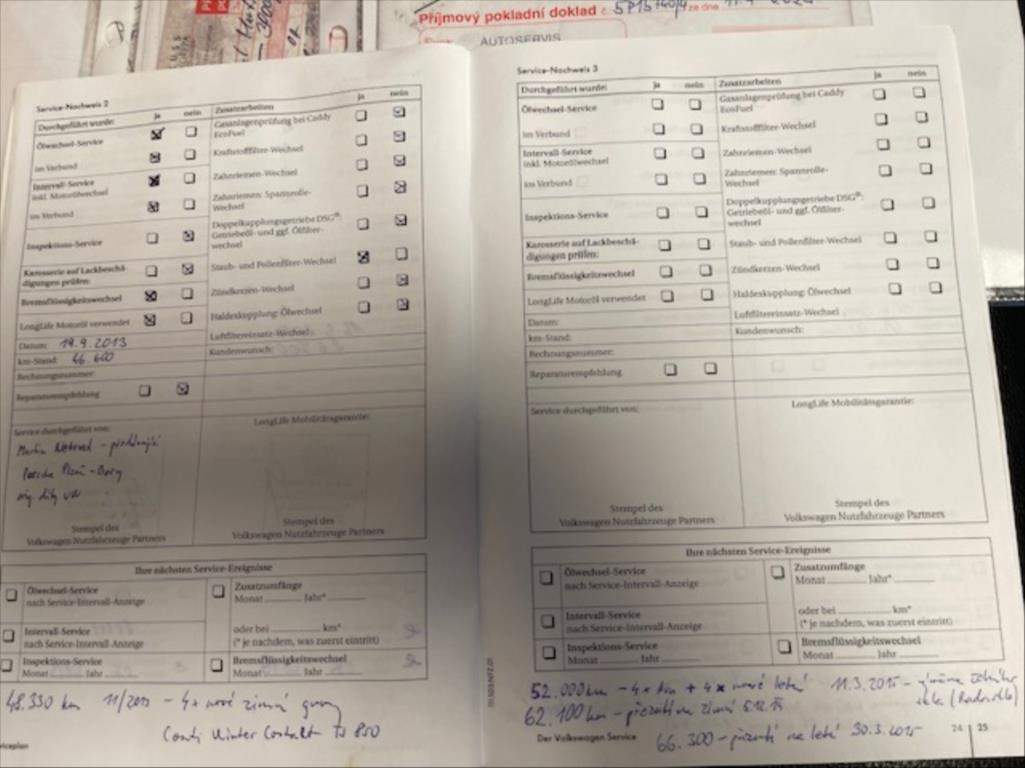 Příjmový pokladní doklad č.
ze dne
AUTOSERVIS
Service-Nachweis 2
Durchgeführt wurde:
ja
nein
Zusatzarbeiten
ja
nein
Ölwechsel-Service
Gasanlagenprüfung bei Caddy
EcoFuel
im Verbund
Kraftstofffilter-Wechsel
Intervall-Service
inkl. Motorölwechsel
Zahnriemen-Wechsel
im Verbund
Zahnriemen: Spannrolle-
Wechsel
Inspektions-Service
Doppelkupplungsgetriebe DSG®:
Getriebeöl- und ggf. Ölfilter-
wechsel
Karosserie auf Lackbeschä-
digungen prüfen:
Staub- und Pollenfilter-Wechsel
Bremsflüssigkeitswechsel
Zündkerzen-Wechsel
LongLife Motoröl verwendet
Haldexkupplung: Ölwechsel
Datum: 19.9.2013
Luftfiltereinsatz-Wechsel
km-Stand: 46.600
Kundenwunsch:
Rechnungsnummer:
Reparaturempfehlung
Service durchgeführt von:
LongLife Mobilitätsgarantie:
Martin
Porsche Plzeň - Bory
orig. díly VW
Stempel des
Volkswagen Nutzfahrzeuge Partners
Stempel des
Volkswagen Nutzfahrzeuge Partners
Ihre nächsten Service-Ereignisse
Ölwechsel-Service
nach Service-Intervall-Anzeige
Zusatzumfänge
Monat Jahr*
Intervall-Service
nach Service-Intervall-Anzeige
oder bei km*
(* je nachdem, was zuerst eintritt)
Inspektions-Service
Monat Jahr
Bremsflüssigkeitswechsel
Monat Jahr
48.330 km 11/2013 - 4x nové zimní gumy
Conti Winter Contakt TS 850
Service-Nachweis 3
Durchgeführt wurde:
ja
nein
Zusatzarbeiten
ja
nein
Ölwechsel-Service
Gasanlagenprüfung bei Caddy
EcoFuel
im Verbund
Kraftstofffilter-Wechsel
Intervall-Service
inkl. Motorölwechsel
Zahnriemen-Wechsel
im Verbund
Zahnriemen: Spannrolle-
Wechsel
Inspektions-Service
Doppelkupplungsgetriebe DSG®:
Getriebeöl- und ggf. Ölfilter-
wechsel
Karosserie auf Lackbeschä-
digungen prüfen:
Staub- und Pollenfilter-Wechsel
Bremsflüssigkeitswechsel
Zündkerzen-Wechsel
LongLife Motoröl verwendet
Haldexkupplung: Ölwechsel
Datum:
Luftfiltereinsatz-Wechsel
km-Stand:
Kundenwunsch:
Rechnungsnummer:
Reparaturempfehlung
Service durchgeführt von:
LongLife Mobilitätsgarantie:
Stempel des
Volkswagen Nutzfahrzeuge Partners
Stempel des
Volkswagen Nutzfahrzeuge Partners
Ihre nächsten Service-Ereignisse
Ölwechsel-Service
nach Service-Intervall-Anzeige
Zusatzumfänge
Monat Jahr*
Intervall-Service
nach Service-Intervall-Anzeige
oder bei km*
(* je nachdem, was zuerst eintritt)
Inspektions-Service
Monat Jahr
Bremsflüssigkeitswechsel
Monat Jahr
52.000 km - 4x + 4x nové letní 11.3.2015 - výměna
skla
62.100 km - přezutí na zimní
66.300 - přezutí na letní 30.3.2015
Der Volkswagen Service
24 | 25